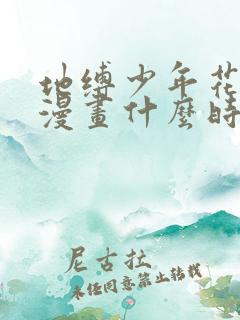 地缚少年花
漫畫什麼時
尼古拉
未经同意禁止转载